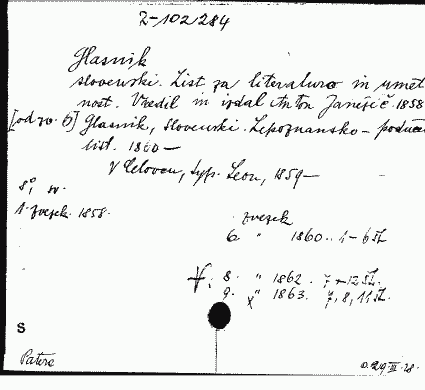 Z-102284
Glasnik
slovenski. List za literaturo in umet
nost. Vredil in izdal Anton Janežič 1858
[od zv. 6] Glasnik, Slovenski. Lepoznansko-podučen
list. 1860-
V Celovcu, typ. Leon, 1859-
8°, w.
1. zvezek. 1858.
zvezek
6 " 1860. 1-6 št.
8. " 1862. 7-12 št.
9. " 1863. 7, 8, 11 št.
S
Patere